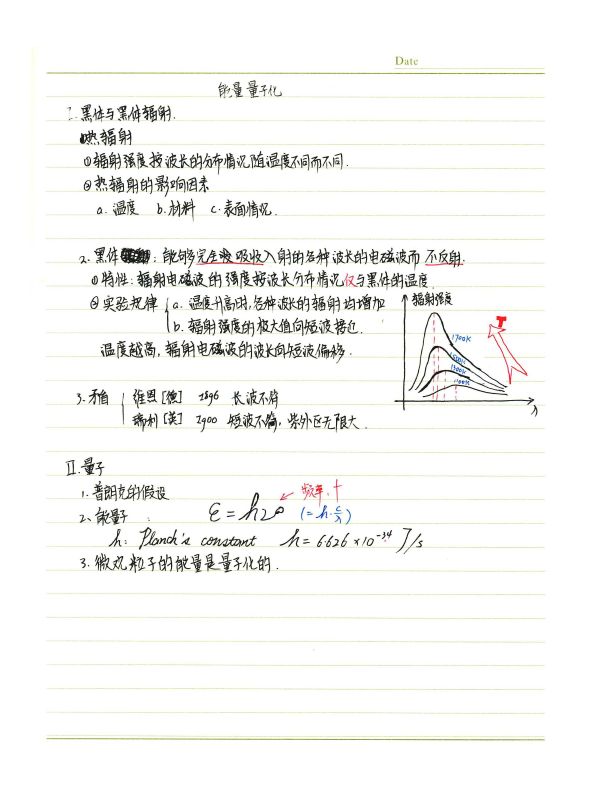 Date
能量量子化
I.黑体与黑体辐射.
1.热辐射
①辐射强度按波长的分布情况随温度不同而不同.
②热辐射的影响因素
a.温度 b.材料 c.表面情况.
2.黑体: 能够完全吸收入射的各种波长的电磁波而不反射.
①特性:辐射电磁波的强度按波长分布情况仅与黑体的温度
②实验规律 a.温度升高时,各种波长的辐射均增加
b.辐射强度的极大值向短波接近.
温度越高,辐射电磁波的波长向短波偏移.
辐射强度
T
1700K
1300K
1100K
λ
3.矛盾 维恩[德] 1896 长波不符
瑞利[英] 1900 短波不符,紫外区无限大.
II.量子
1.普朗克的假设
2、能量子: ε=hν ← 频率,f
(=h·c/λ)
h: Planck's constant h=6.626×10⁻³⁴ J/s
3.微观粒子的能量是量子化的.